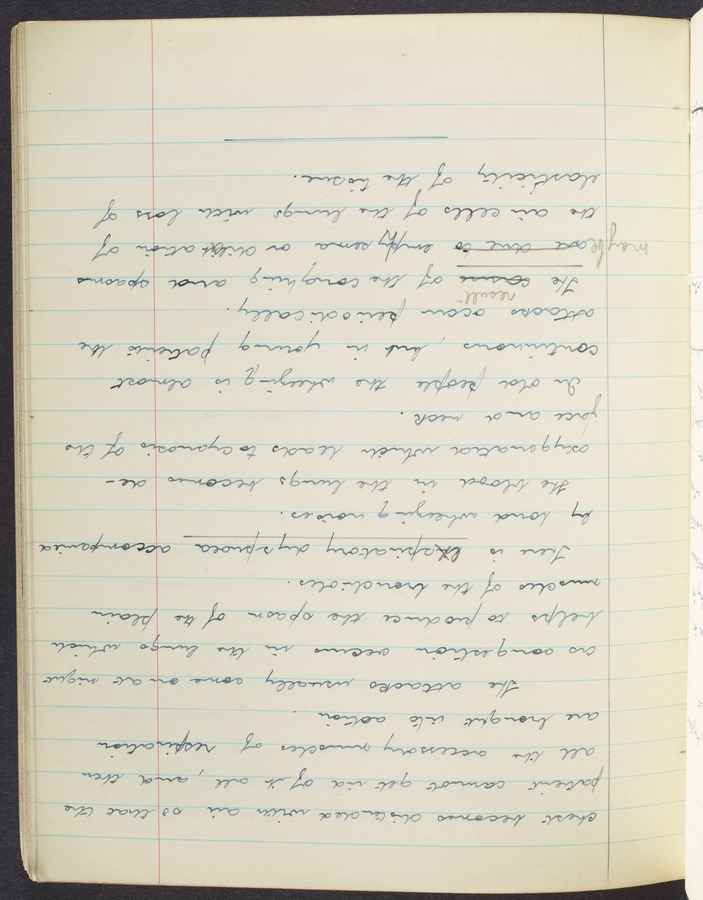 chest becomes distended with air so that the
patient cannot get rid of it all, and then
all the accessory muscles of respiration
are brought into action.
The attacks usually come on at night
as congestion occurs in the lungs which
helps to produce the spasm of the plain
muscles of the bronchioles.
There is expiratory dyspnoea accompanied
by loud wheezing noises.
The blood in the lungs becomes de-
oxygenated which leads to cyanosis of the
face and neck.
In old people the wheezing is almost
continuous, but in young patients the
attacks occur periodically.
result
The cause of the coughing and spasms
maybe are due to emphysema or dilatation of
the air cells of the lungs with loss of
elasticity of the tissue.